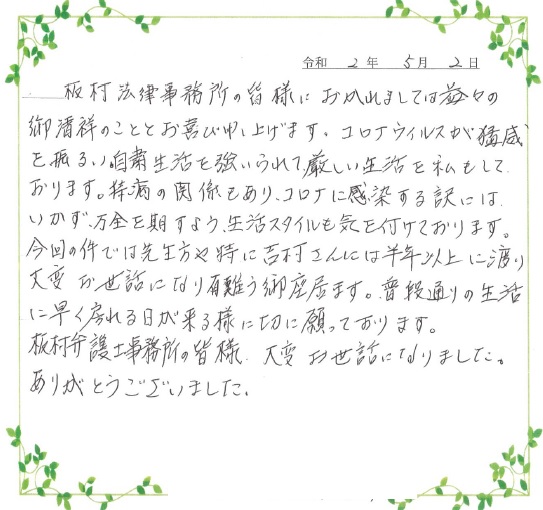 令和 2年 5月 2日
板村法律事務所の皆様に おかれましては益々の
御清祥のこととお喜び申し上げます。コロナウィルスが猛威
を振るい自粛生活を強いられて厳しい生活を私もして
おります。持病の関係もあり、コロナに感染する訳には
いかず、万全を期すよう、生活スタイルも気を付けております。
今回の件では先生方や特に吉村さんには半年以上に渡り
大変 お世話になり有難う御座居ます。普段通りの生活
に早く戻れる日が来る様に切に願っております。
板村弁護士事務所の皆様 大変お世話になりました。
ありがとうございました。